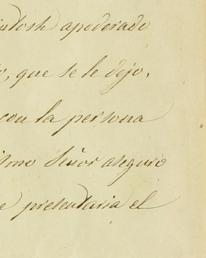 intosh apoderado
, que se le dejo,
con la persona
ismo Señor aseguro
e presentaria el